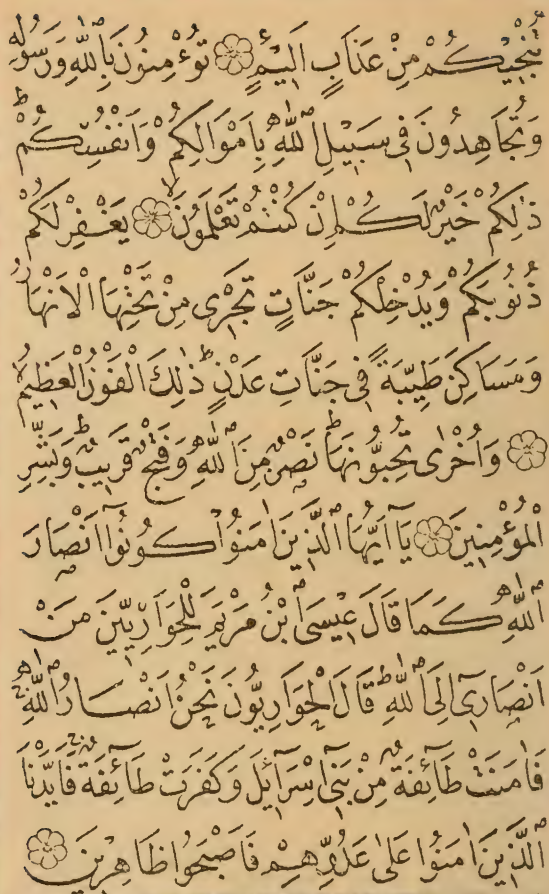 تُنْجِيكُمْ مِنْ عَذَابٍ اَلِيمٍ ۞ تُوءْمِنُونَ بِاللّٰهِ وَرَسُولِهِ
وَتُجَاهِدُونَ فِي سَبِيلِ اللّٰهِ بِاَمْوَالِكُمْ وَاَنْفُسِكُمْ ط
ذٰلِكُمْ خَيْرٌ لَكُمْ اِنْ كُنْتُمْ تَعْلَمُونَ ۞ يَغْفِرْ لَكُمْ
ذُنُوبَكُمْ وَيُدْخِلْكُمْ جَنَّاتٍ تَجْرِى مِنْ تَحْتِهَا الْاَنْهَارُ
وَمَسَاكِنَ طَيِّبَةً فِي جَنَّاتِ عَدْنٍ ط ذٰلِكَ الْفَوْزُ الْعَظِيمُ لا
۞ وَاُخْرٰى تُحِبُّونَهَا ط نَصْرٌ مِنَ اللّٰهِ وَفَتْحٌ قَرِيبٌ ط وَبَشِّرِ
الْمُوءْمِنِينَ ۞ يَآ اَيُّهَا الَّذِينَ اٰمَنُوا كُونُوآ اَنْصَارَ
اللّٰهِ كَمَا قَالَ عِيسَى ابْنُ مَرْيَمَ لِلْحَوَارِيّٖنَ مَنْ
اَنْصَارِىٓ اِلَى اللّٰهِ ط قَالَ الْحَوَارِيُّونَ نَحْنُ اَنْصَارُ اللّٰهِ
فَاٰمَنَتْ طَآئِفَةٌ مِنْ بَنِىٓ اِسْرَآئِلَ وَكَفَرَتْ طَآئِفَةٌ ج فَاَيَّدْنَا
الَّذِينَ اٰمَنُوا عَلٰى عَدُوِّهِمْ فَاَصْبَحُوا ظَاهِرِينَ ۞